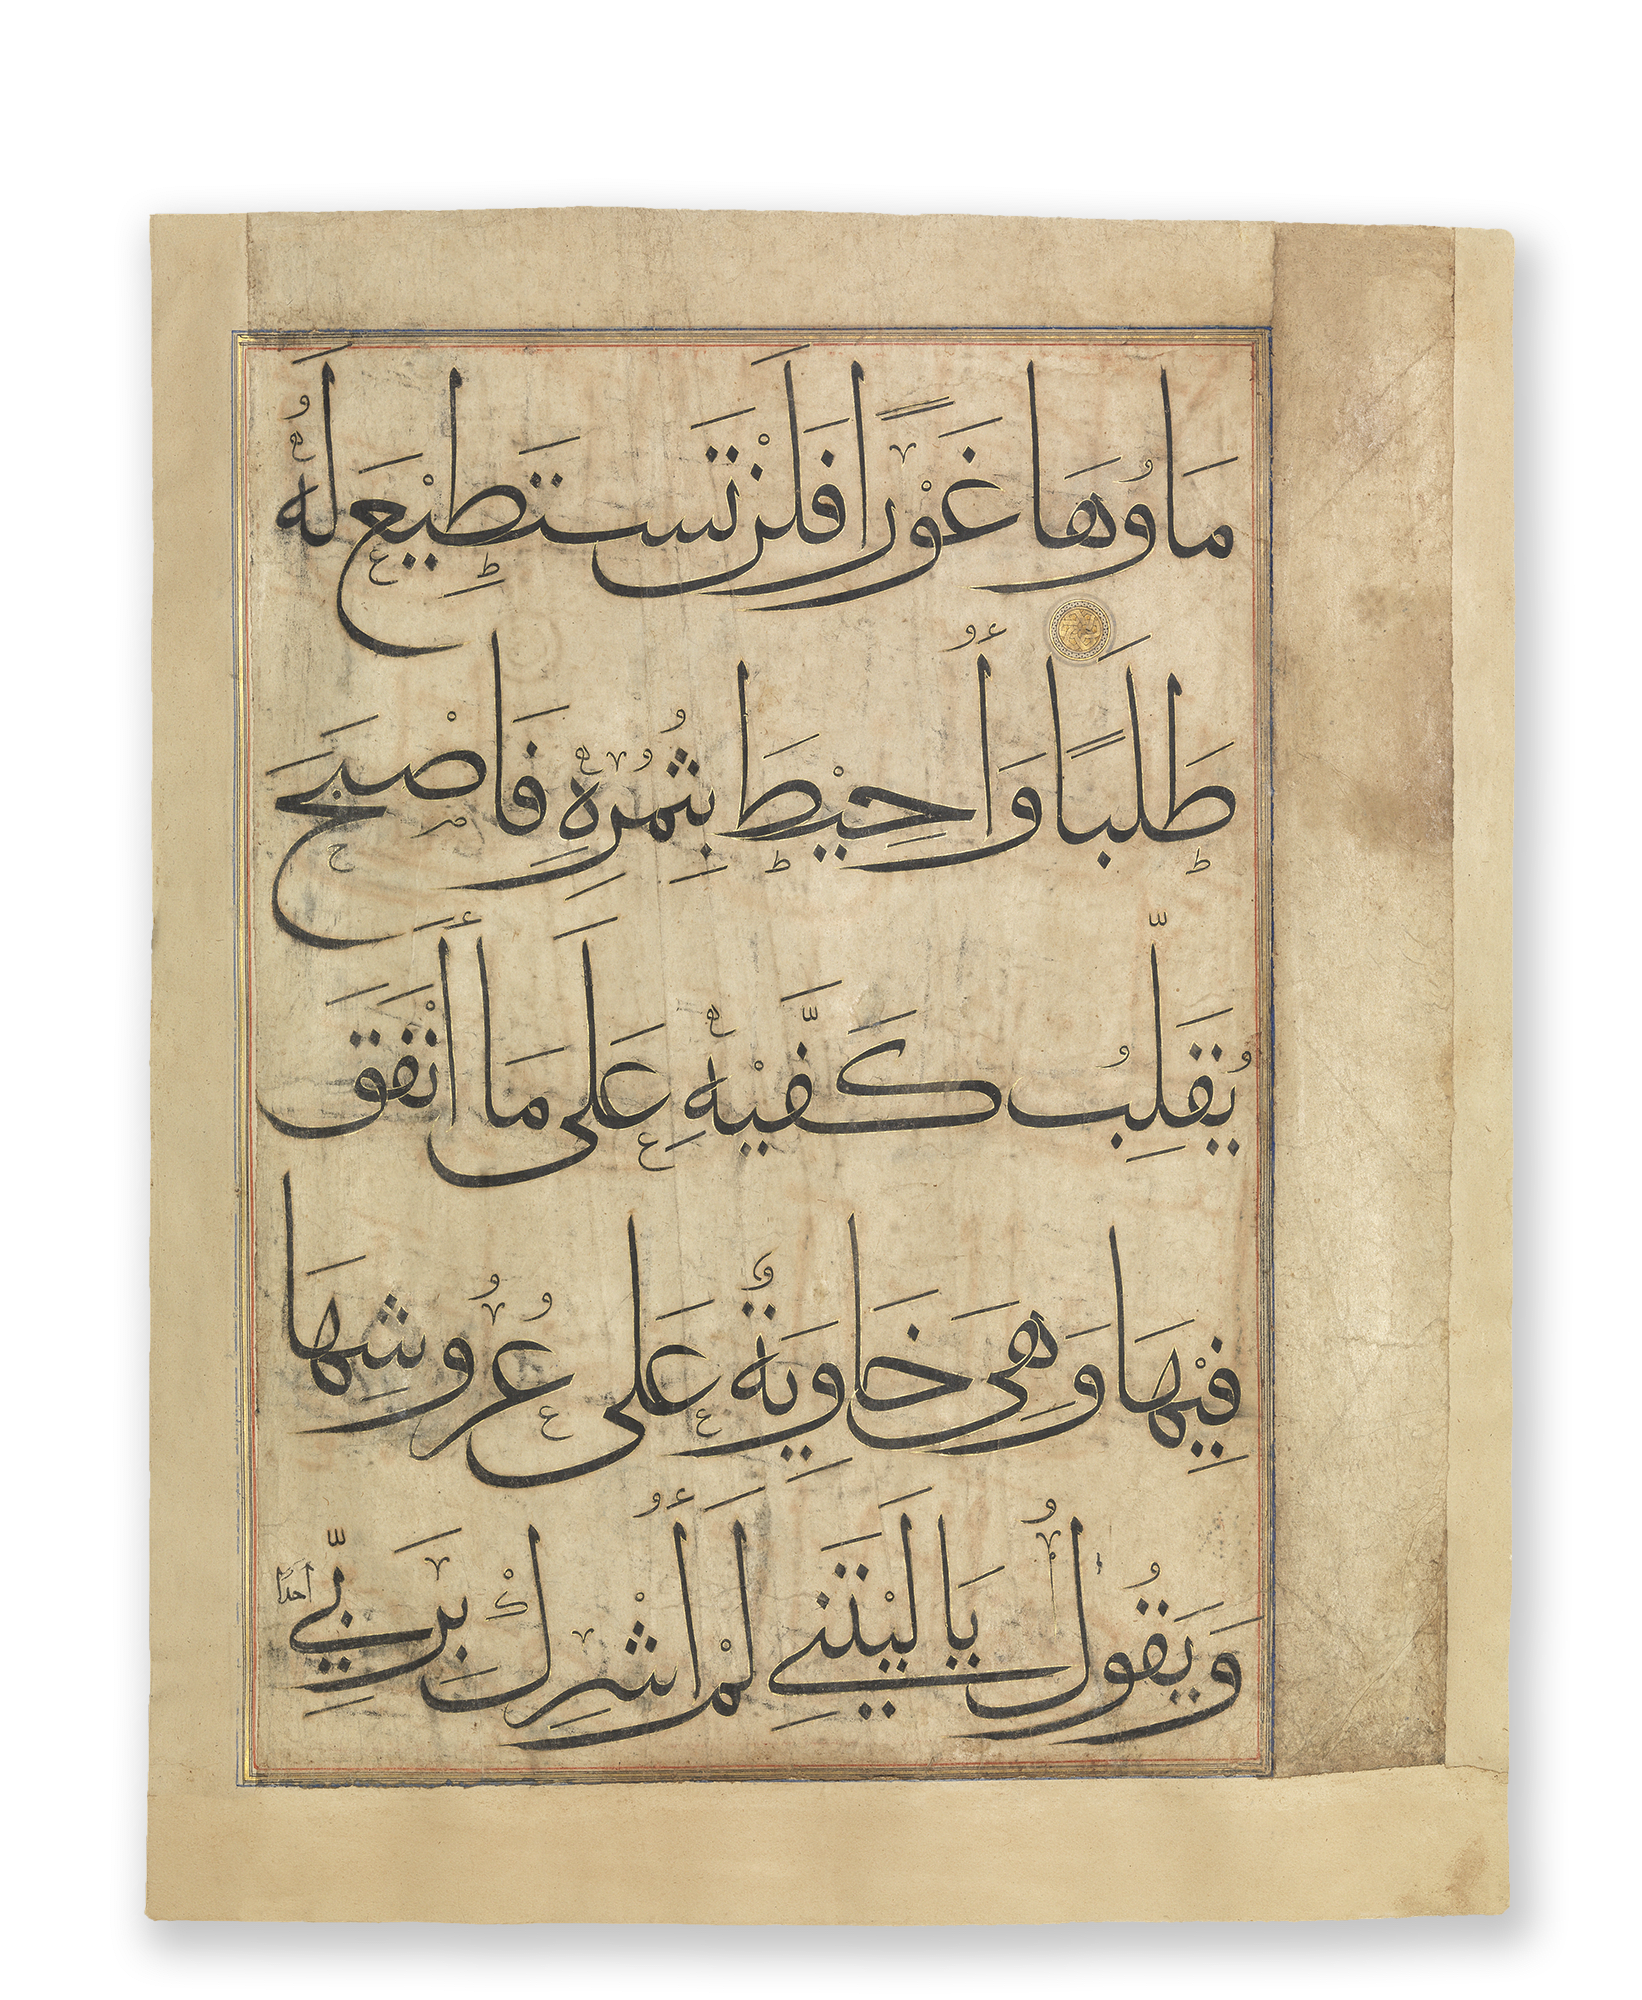 مَاوُهَا غَوْرًا فَلَنْ تَسْتَطِيْعَ لَهُ
طَلَبًا وَأُحِيْطَ بِثُمُرِهِ فَاَصْبَحَ
يُقَلِّبُ كَفَّيْهِ عَلَى مَا أَنْفَقَ
فِيْهَا وَهِىَ خَاوِيَةٌ عَلَى عُرُوشِهَا
وَيَقُولُ يَا لَيْتَنِي لَمْ أُشْرِكْ بِرَبِّي أحدًا